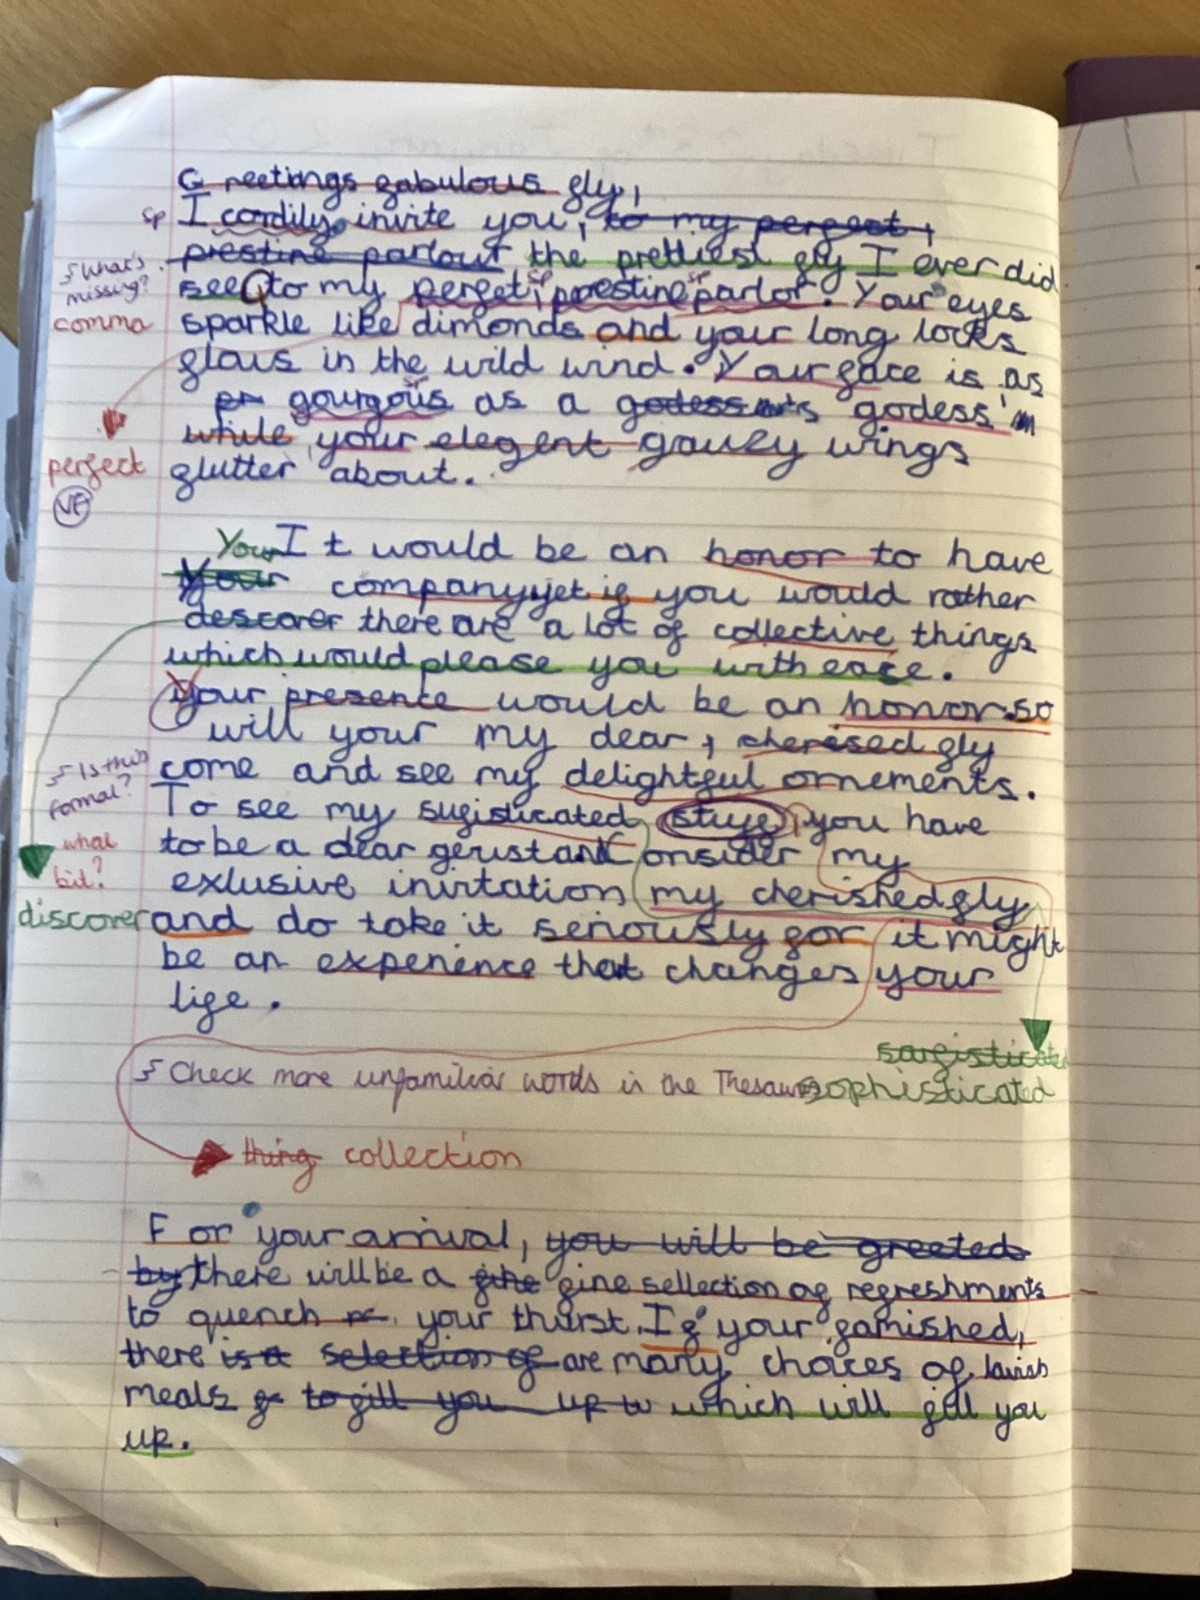 Greetings fabulous fly,
Sp I cordily invite you, to my perfect,
What's missing? prestine parlour the prettiest fly I ever did
see to my perfet, sp prestine sp parlor. Your eyes
comma sparkle like dimonds and your long locks
glous in the wild wind. Your face is as
gourgous as a godess godess
while your elegent gauzy wings
perfect flutter about.
VF
Your It would be an honor to have
Your company yet if you would rather
descorer there are a lot of collective things
which would please you with ease.
Your presence would be an honor so
will your my dear, cherised fly
Is this formal? come and see my delightful ornements.
To see my sufisticated stuff you have
what bit? to be a dear and consider my
exlusive invitation my cherished fly
discover and do take it seriously for it might
be an experience that changes your
life.
sarfisticated
Check more unfamiliar words in the Thesaurus sophisticated
thing collection
For your arrival, you will be greeted
by there will be a fine sellection of refreshments
to quench your thurst. If your famished,
there is a selection of are many choices of lavish
meals to fill you up which will fill you
up.